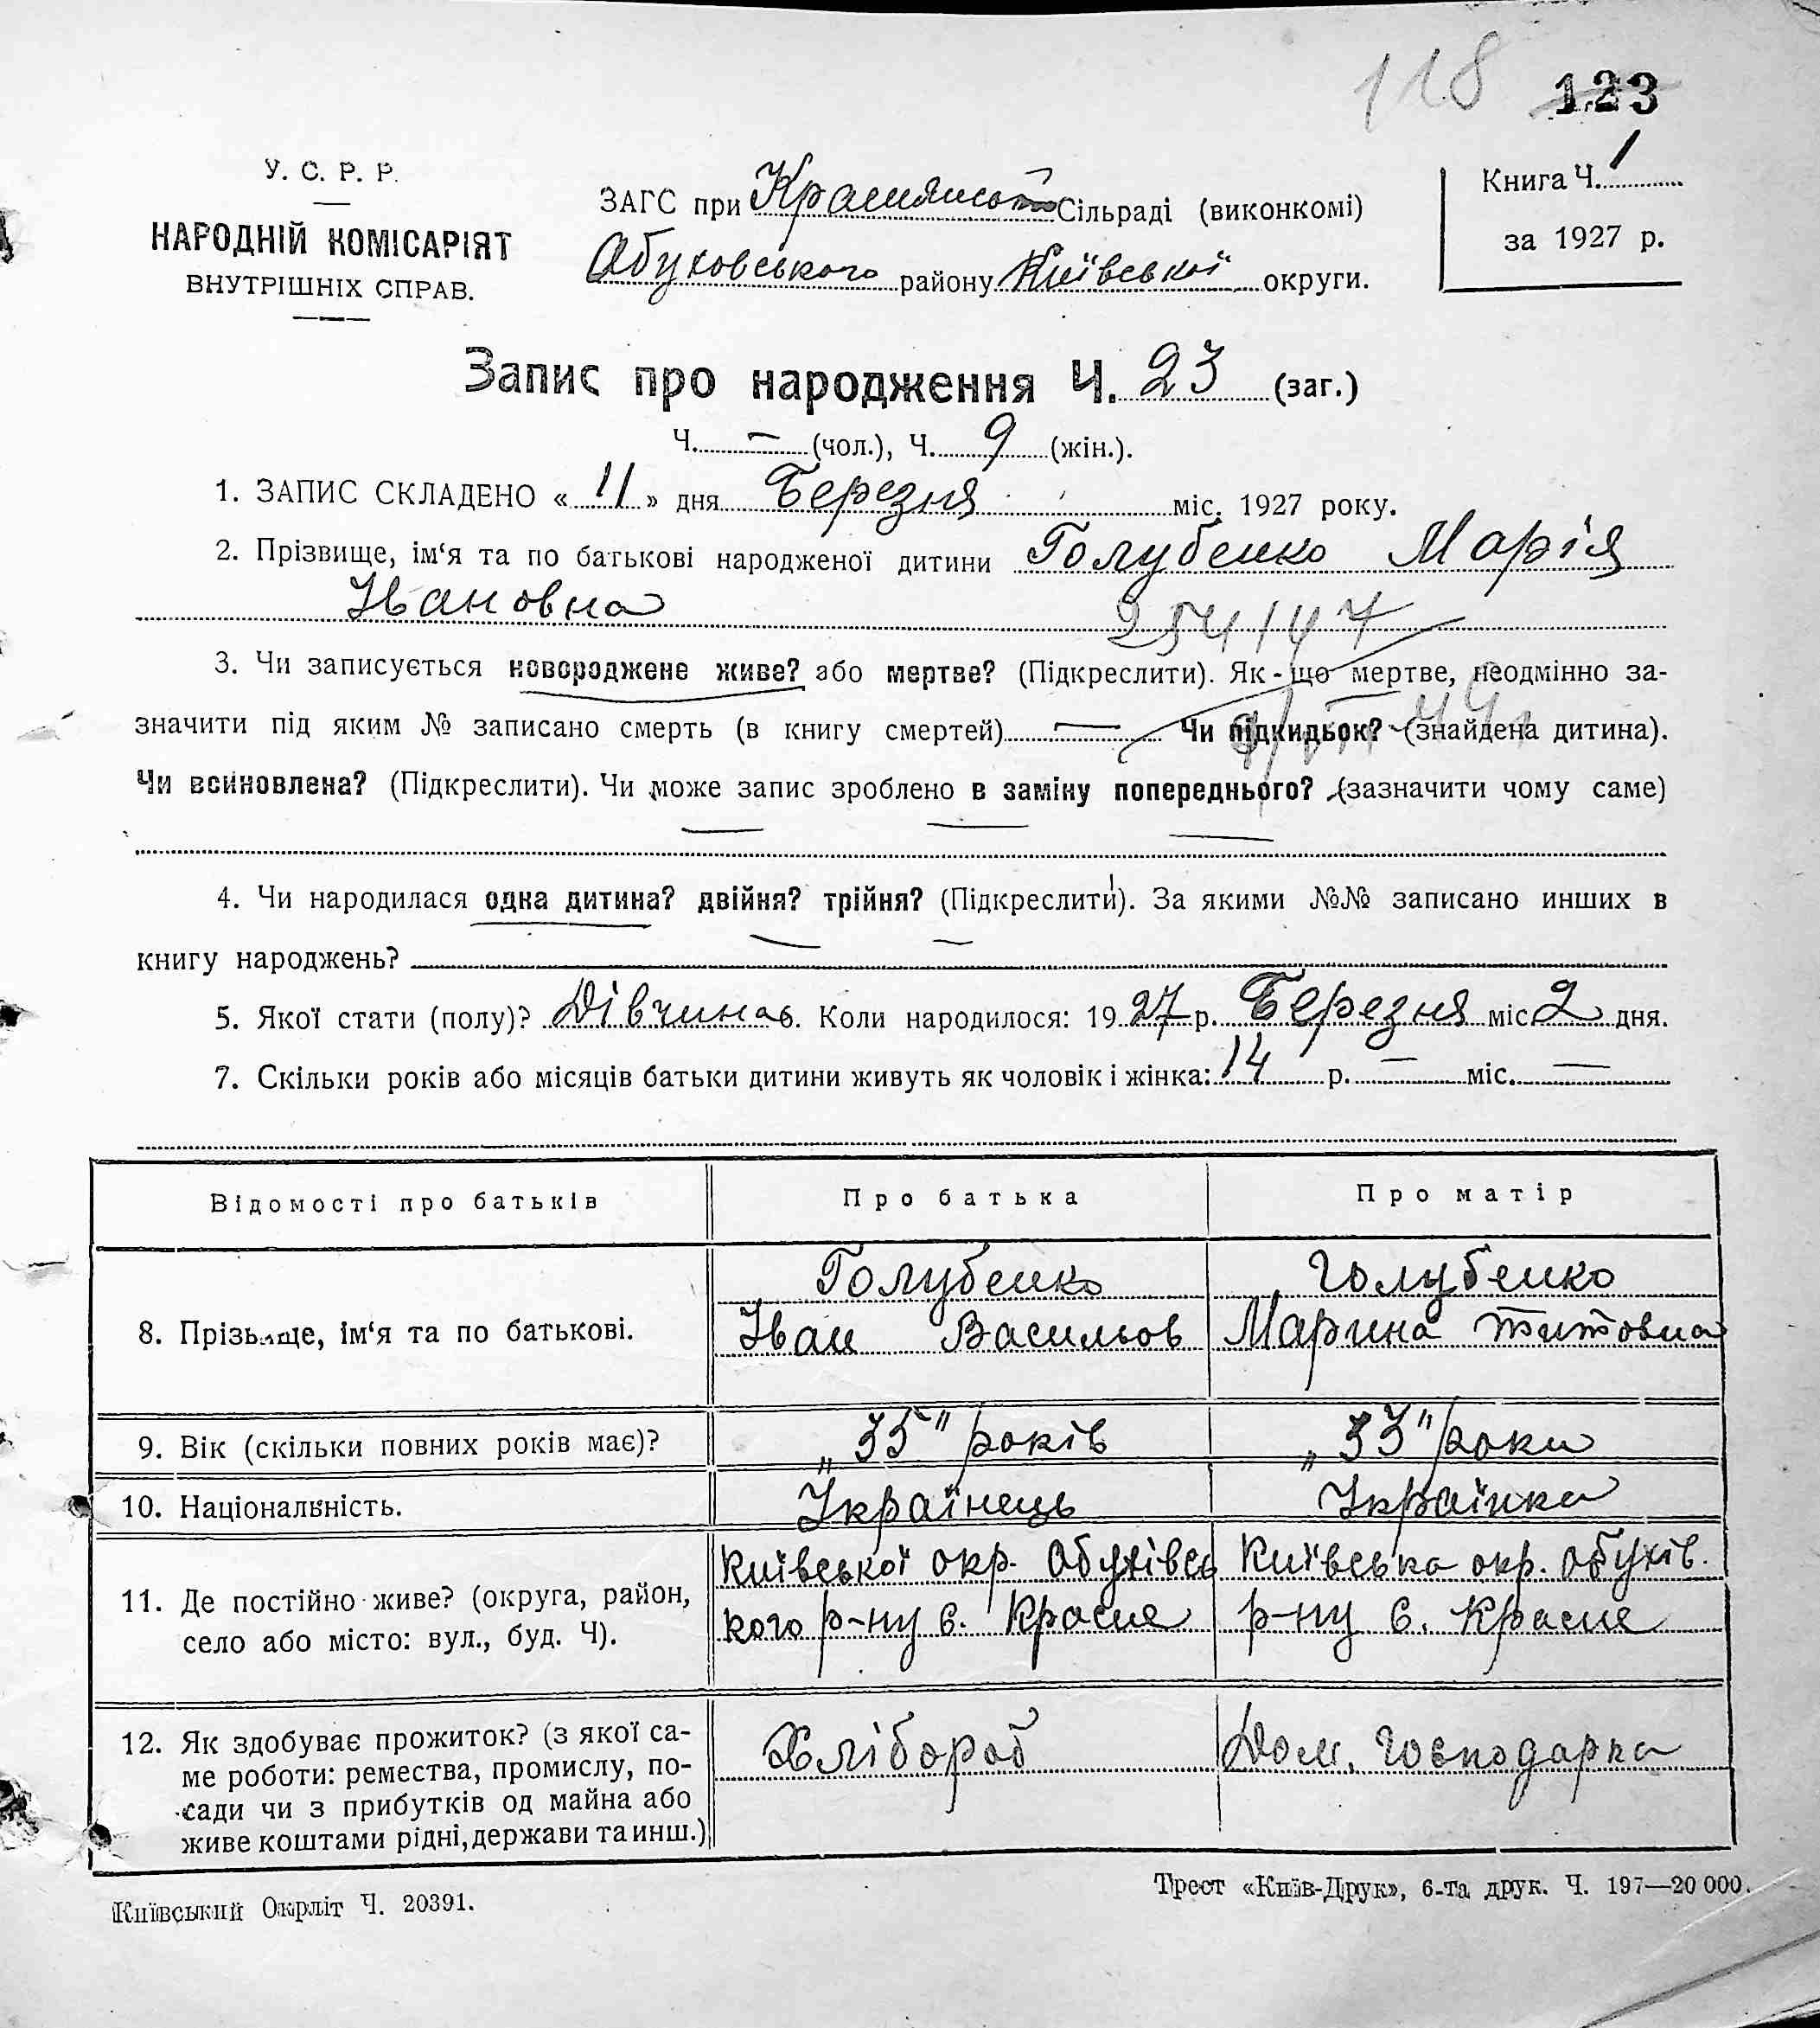 118 123
У. С. Р. Р.
НАРОДНІЙ КОМІСАРІЯТ
ВНУТРІШНІХ СПРАВ.
ЗАГС при Краснянській Сільраді (виконкомі)
Обуховського району Київської округи.
Книга Ч. 1
за 1927 р.
Запис про народження Ч. 23 (заг.)
Ч. — (чол.), Ч. 9 (жін.).
1. ЗАПИС СКЛАДЕНО « 11 » дня Березня міс. 1927 року.
2. Прізвище, ім‘я та по батькові народженої дитини Голубенко Марія
Івановна
254147
3. Чи записується новороджене живе? або мертве? (Підкреслити). Як-що мертве, неодмінно за-
значити під яким № записано смерть (в книгу смертей) — Чи підкидьок? (знайдена дитина).
Чи всиновлена? (Підкреслити). Чи може запис зроблено в заміну попереднього? (зазначити чому саме)
4. Чи народилася одна дитина? двійня? трійня? (Підкреслити). За якими №№ записано инших в
книгу народжень?
5. Якої стати (полу)? Дівчина 6. Коли народилося: 1927 р. Березня міс 2 дня.
7. Скільки років або місяців батьки дитини живуть як чоловік і жінка: 14 р. — міс. —
Відомості про батьків Про батька Про матір
8. Прізвище, ім‘я та по батькові. Голубенко Голубенко
Іван Васильов Марина Титовна
9. Вік (скільки повних років має)? „35" років „33" роки
10. Національність. Українець Українка
11. Де постійно живе? (округа, район,
село або місто: вул., буд. Ч). Київської окр. Обухівсь Київська окр. Обухів.
кого р-ну с. Красне р-ну с. Красне
12. Як здобуває прожиток? (з якої са-
ме роботи: ремества, промислу, по-
сади чи з прибутків од майна або
живе коштами рідні, держави та инш.) Хлібороб Дом. господарка
Київський Окрліт Ч. 20391.
Трест «Київ-Друк», 6-та друк. Ч. 197—20 000.